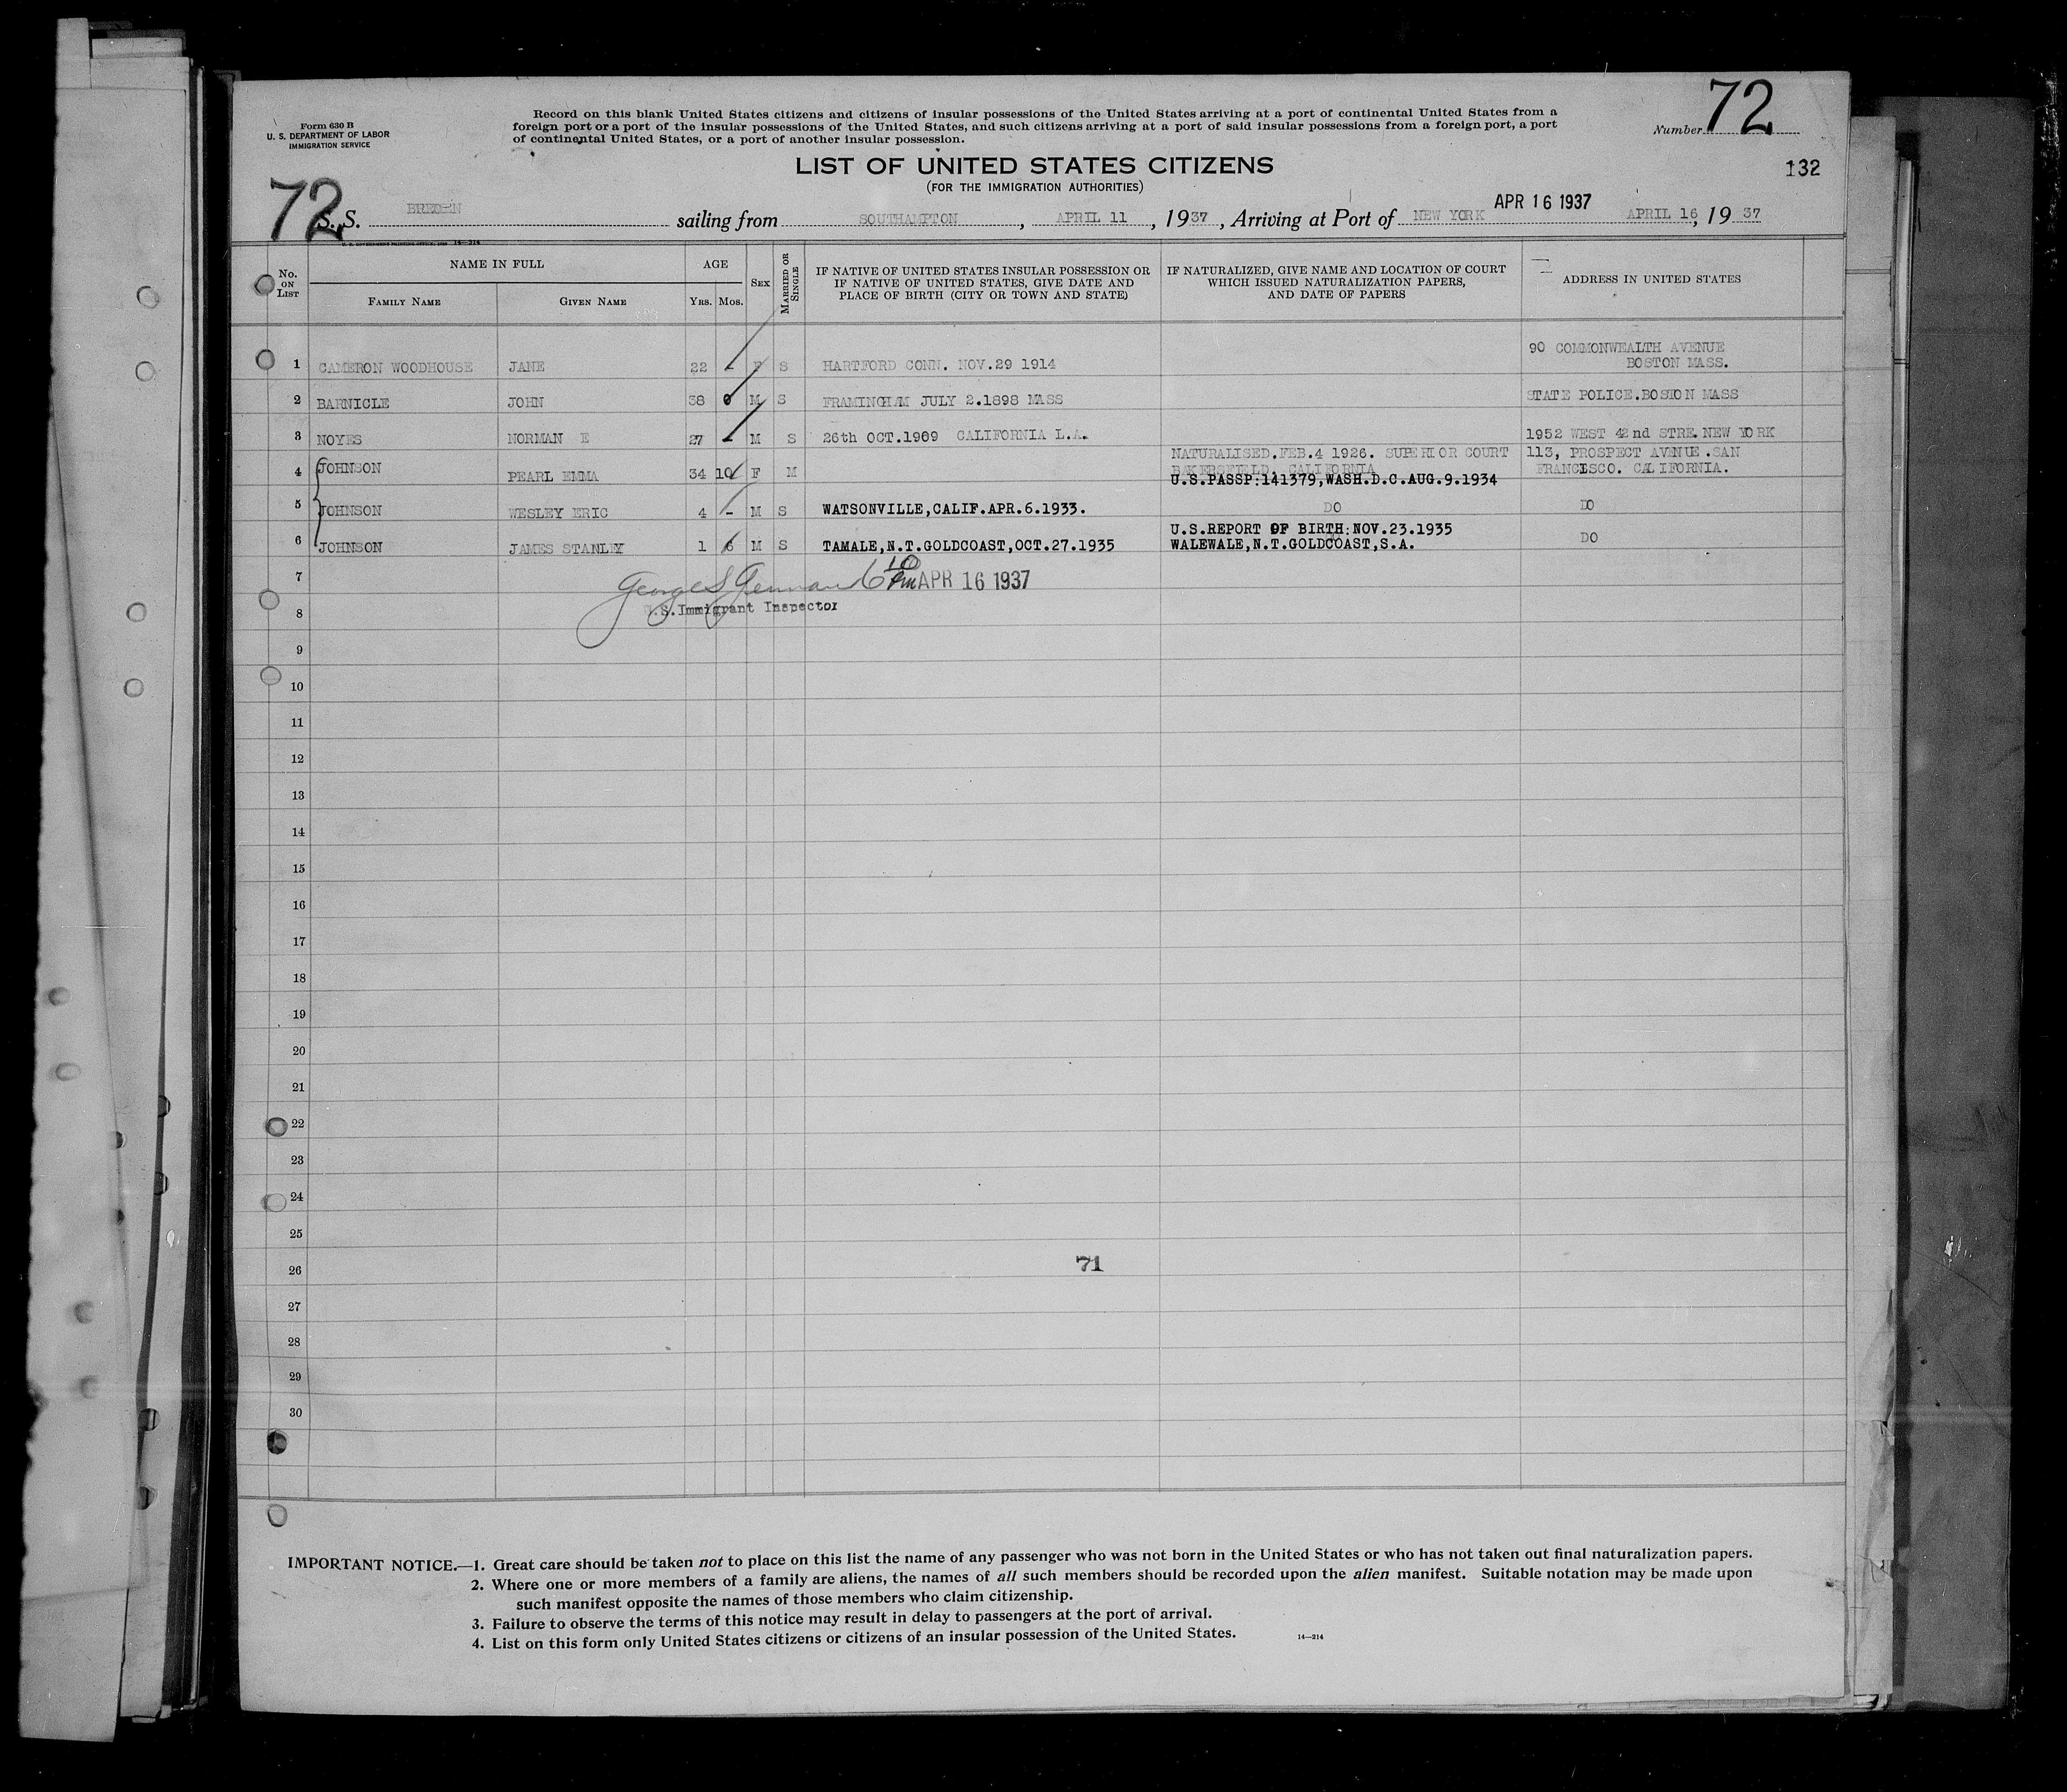 Form 630 B
U. S. DEPARTMENT OF LABOR
IMMIGRATION SERVICE
Record on this blank United States citizens and citizens of insular possessions of the United States arriving at a port of continental United States from a
foreign port or a port of the insular possessions of the United States, and such citizens arriving at a port of said insular possessions from a foreign port, a port
of continental United States, or a port of another insular possession.
Number 72
LIST OF UNITED STATES CITIZENS
(FOR THE IMMIGRATION AUTHORITIES)
132
72
APR 16 1937
S. S. BREMEN sailing from SOUTHAMPTON, APRIL 11, 1937, Arriving at Port of NEW YORK APRIL 16, 1937
No. ON LIST
NAME IN FULL
FAMILY NAME GIVEN NAME
AGE
YRS. MOS.
SEX
MARRIED OR SINGLE
IF NATIVE OF UNITED STATES INSULAR POSSESSION OR
IF NATIVE OF UNITED STATES, GIVE DATE AND
PLACE OF BIRTH (CITY OR TOWN AND STATE)
IF NATURALIZED, GIVE NAME AND LOCATION OF COURT
WHICH ISSUED NATURALIZATION PAPERS,
AND DATE OF PAPERS
ADDRESS IN UNITED STATES
1 CAMERON WOODHOUSE JANE 22 - F S HARTFORD CONN. NOV.29 1914 90 COMMONWEALTH AVENUE
BOSTON MASS.
2 BARNICLE JOHN 38 M S FRAMINGHAM JULY 2.1898 MASS STATE POLICE.BOSTON MASS
3 NOYES NORMAN E 27 - M S 26th OCT.1909 CALIFORNIA L.A. 1952 WEST 42nd STRE. NEW YORK
4 JOHNSON PEARL EMMA 34 10 F M NATURALISED.FEB.4 1926. SUPERIOR COURT 113, PROSPECT AVENUE.SAN
BAKERSFIELD. CALIFORNIA FRANCISCO. CALIFORNIA.
U.S.PASSP:141379,WASH.D.C.AUG.9.1934
5 JOHNSON WESLEY ERIC 4 - M S WATSONVILLE,CALIF.APR.6.1933. DO DO
6 JOHNSON JAMES STANLEY 1 6 M S TAMALE,N.T.GOLDCOAST,OCT.27.1935 U.S.REPORT OF BIRTH:NOV.23.1935 DO
WALEWALE,N.T.GOLDCOAST,S.A.
7 George S 6 10 Pm APR 16 1937
U.S.Immigrant Inspector
8
9
10
11
12
13
14
15
16
17
18
19
20
21
22
23
24
25
26 71
27
28
29
30
IMPORTANT NOTICE.—1. Great care should be taken not to place on this list the name of any passenger who was not born in the United States or who has not taken out final naturalization papers.
2. Where one or more members of a family are aliens, the names of all such members should be recorded upon the alien manifest. Suitable notation may be made upon
such manifest opposite the names of those members who claim citizenship.
3. Failure to observe the terms of this notice may result in delay to passengers at the port of arrival.
4. List on this form only United States citizens or citizens of an insular possession of the United States. 14—214